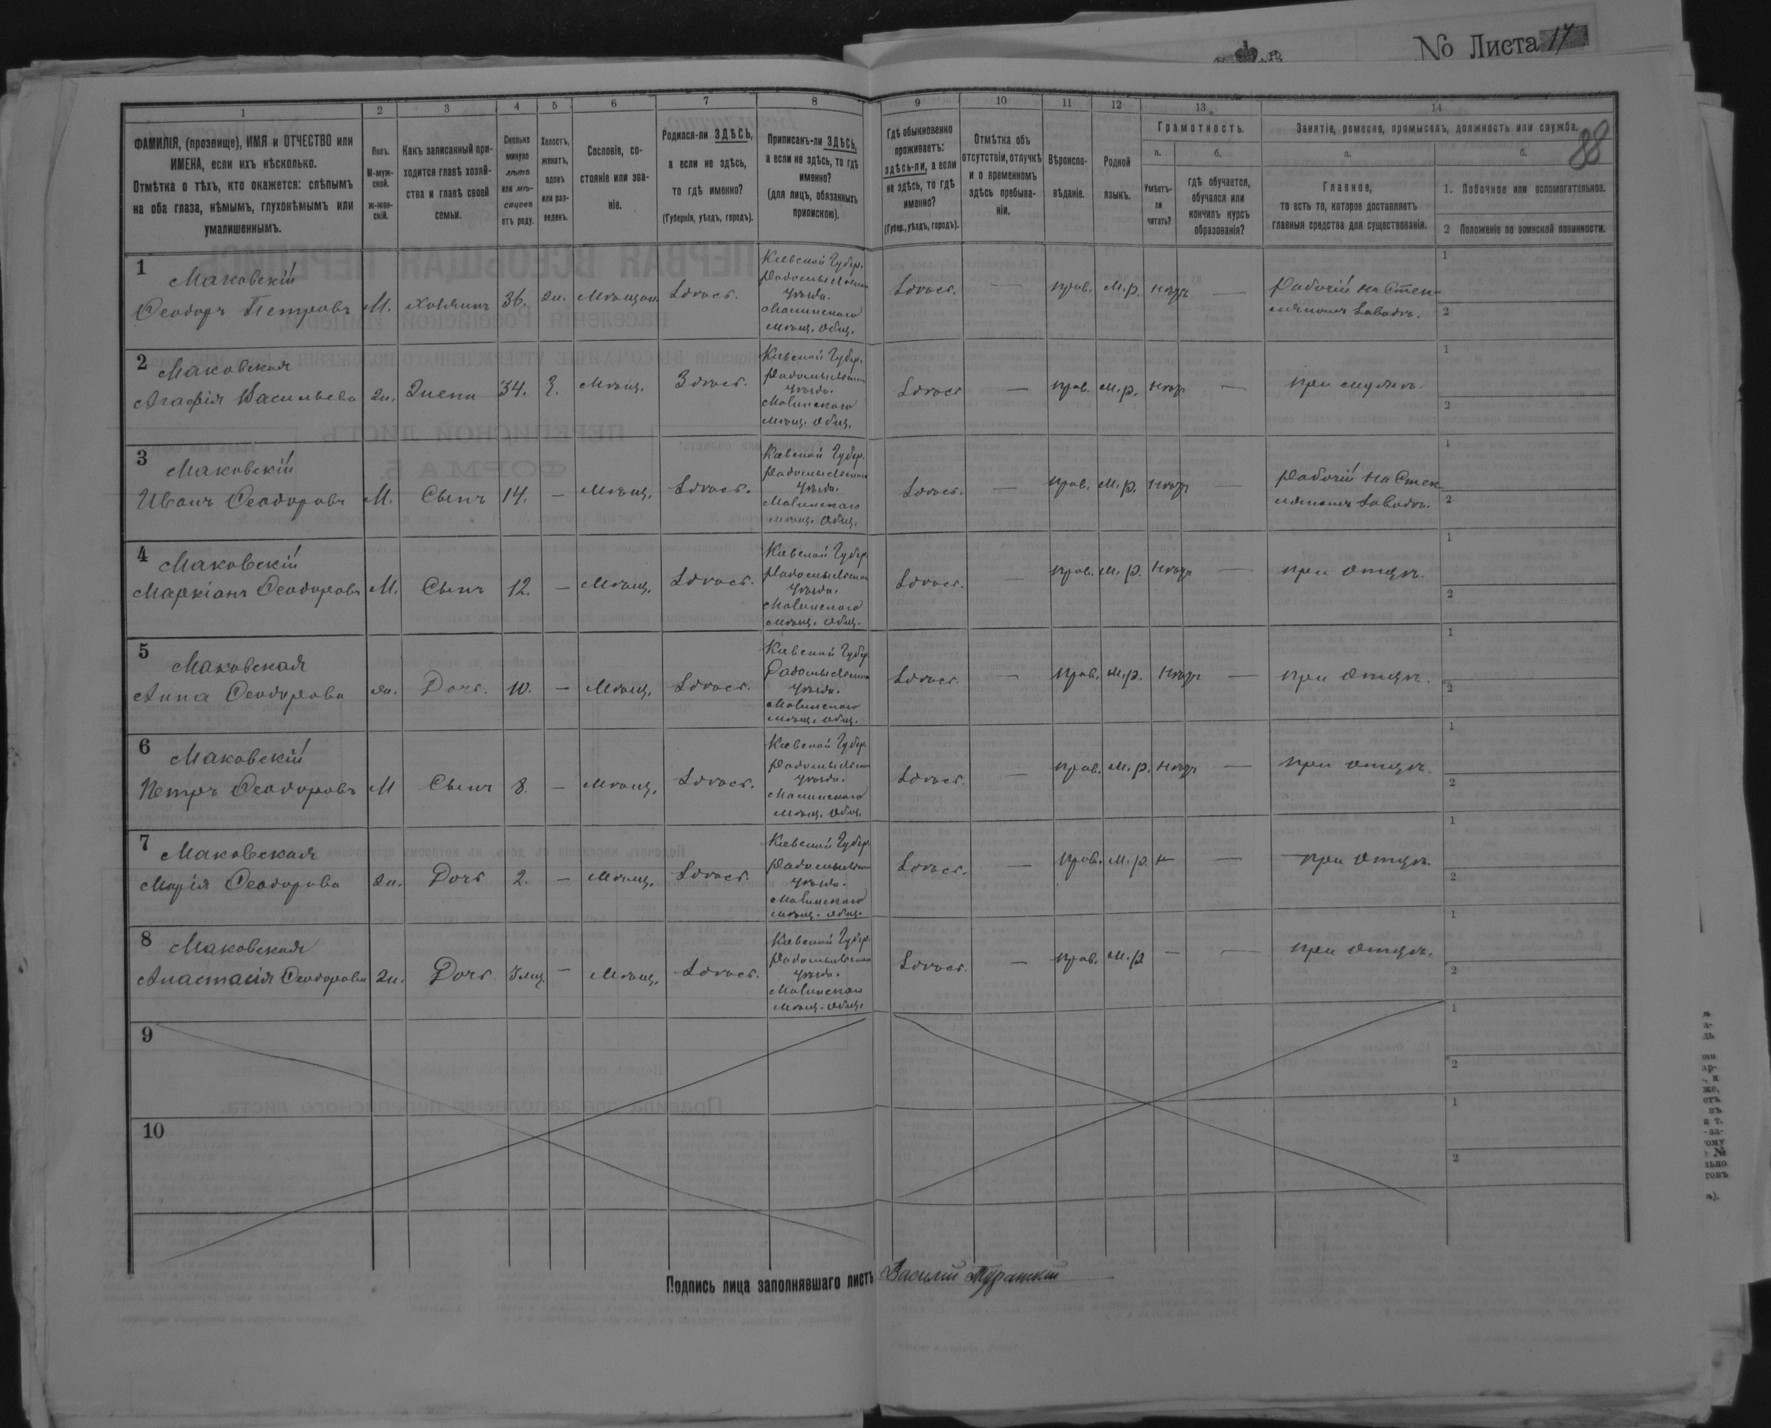 No Листа 17
88
1
2
3
4
5
6
7
8
9
10
11
12
13
14
ФАМИЛІЯ, (прозвище), ИМЯ и ОТЧЕСТВО или
ИМЕНА, если ихъ нѣсколько.
Отмѣтка о тѣхъ, кто окажется: слѣпымъ
на оба глаза, нѣмымъ, глухонѣмымъ или
умалишеннымъ.
Полъ.
М-муж-
ской.
ж-жен-
скій.
Какъ записанный при-
ходится главѣ хозяй-
ства и главѣ своей
семьи.
Сколько
минуло
лѣтъ
или мѣ-
сяцевъ
отъ роду.
Холостъ,
женатъ,
вдовъ
или раз-
веденъ.
Сословіе, со-
стояніе или зва-
ніе.
Родился-ли ЗДѢСЬ,
а если не здѣсь,
то гдѣ именно?
(Губернія, уѣздъ, городъ).
Приписанъ-ли ЗДѢСЬ,
а если не здѣсь, то гдѣ
именно?
(для лицъ, обязанныхъ
припискою).
Гдѣ обыкновенно
проживаетъ:
здѣсь-ли, а если
не здѣсь, то гдѣ
именно?
(Губер., уѣздъ, городъ).
Отмѣтка объ
отсутствіи, отлучкѣ
и о временномъ
здѣсь пребыва-
ніи.
Вѣроиспо-
вѣданіе.
Родной
языкъ.
Грамотность.
а.
Умѣетъ-
ли
читать?
б.
гдѣ обучается,
обучался или
кончилъ курсъ
образованія?
Занятіе, ремесло, промыселъ, должность или служба.
а.
Главное,
то есть то, которое доставляетъ
главныя средства для существованія.
б.
1. Побочное или вспомогательное.
2 Положеніе по воинской повинности.
1
Маковскій
Ѳеодоръ Петровъ М. хозяинъ 36. жн. Мѣщан. Здѣсь.
Кіевской Губер.
Радомысльскаго
Уѣзда.
Малинскаго
мѣщ. Общ.
Здѣсь. — прав. м.р. нѣтъ —
Рабочій на Стек-
лянномъ Заводѣ.
1
2
2
Маковская
Агафія Васильева жн. Жена 34. З. Мѣщ. Здѣсь.
Кіевской Губер.
Радомысльскаго
Уѣзда.
Малинскаго
мѣщ. Общ.
Здѣсь — прав. м.р. нѣтъ — при мужѣ.
1
2
3
Маковскій
Иванъ Ѳеодоровъ М. Сынъ 14. — Мѣщ. Здѣсь.
Кіевской Губер.
Радомысльскаго
Уѣзда.
Малинскаго
мѣщ. Общ.
Здѣсь. — прав. м.р. нѣтъ —
Рабочій на Стек-
лянномъ Заводѣ.
1
2
4
Маковскій
Маркіанъ Ѳеодоровъ М. Сынъ 12. — Мѣщ. Здѣсь.
Кіевской Губер.
Радомысльскаго
Уѣзда.
Малинскаго
мѣщ. Общ.
Здѣсь. — прав. м.р. нѣтъ — при отцѣ.
1
2
5
Маковская
Анна Ѳеодорова жн. Дочь. 10. — Мѣщ. Здѣсь.
Кіевской Губер.
Радомысльскаго
Уѣзда.
Малинскаго
мѣщ. Общ.
Здѣсь. — прав. м.р. нѣтъ — при отцѣ.
1
2
6
Маковскій
Петръ Ѳеодоровъ М Сынъ 8. — Мѣщ. Здѣсь.
Кіевской Губер.
Радомысльскаго
Уѣзда.
Малинскаго
мѣщ. Общ.
Здѣсь. — прав. м.р. нѣтъ — при отцѣ.
1
2
7
Маковская
Марія Ѳеодорова жн. Дочь 2. — Мѣщ. Здѣсь.
Кіевской Губер.
Радомысльскаго
Уѣзда.
Малинскаго
мѣщ. Общ.
Здѣсь. — прав. м.р. н — при отцѣ.
1
2
8
Маковская
Анастасія Ѳеодорова жн. Дочь. мц. — Мѣщ. Здѣсь.
Кіевской Губер.
Радомысльскаго
Уѣзда.
Малинскаго
мѣщ. Общ.
Здѣсь. — прав. м.р. — — при отцѣ.
1
2
9
1
2
10
1
2
Подпись лица заполнявшаго листъ Василій